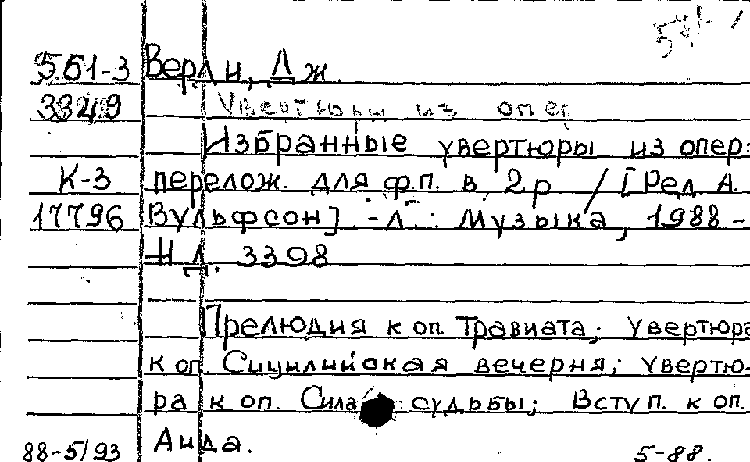 551-3 Верди, Дж.
3349 Увертюры из опер
Избранные увертюры из опер:
К-3 перелож. для ф.п. в 2р / [Ред. А.
17796 Вульфсон]. - Л.: Музыка, 1988 -
Н Д. 3308
Прелюдия к оп. Травиата; увертюра
к оп. Сицилийская вечерня; увертю-
ра к оп. Сила судьбы; Вступ. к оп.
Аида.
88-5/93 5-88.